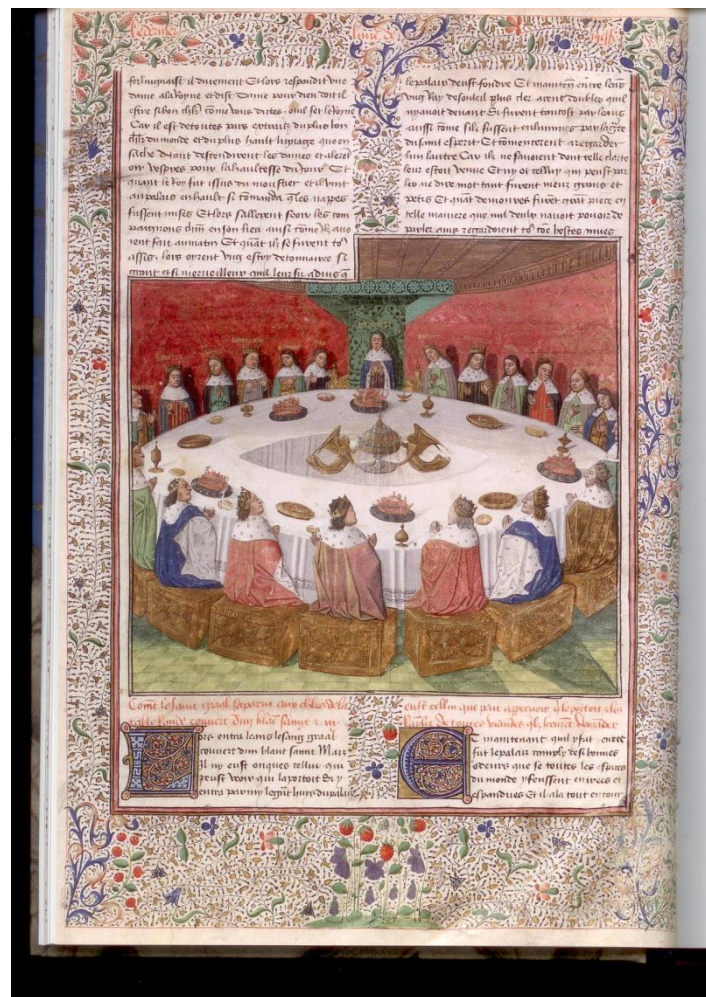 dame a la Royne et dist Dame pour dieu dont il
come vous dictes
Car il est de toutes pars extraitz du plus bon
du monde et du plus hault lignage que on
sache Atant descendirent les dames et alerẽt
oyr vespres pour la haultesse du Jour Et
quant le Roy fut issus du moustier et il vint
au palais en hault si comanda q̃ les napes
fussent mises Et lors sallerent seoir les com
paignons en son lieu ainsi come ilz auo
ient fait au matin Et quãt ilz se furent toꝰ
assis lors oyrent vng escroy de tonnoire si
grant et si merueilleux quil leur fu aduis q̃
le palais deust fondre Et maintenãt entre leans
vng Ray de souleil plus cler a cent doubles quil
nauoit deuant Et furent tantost par leans
aussi come silz fussent enlumines par la grace
du saint esperit Et comencerent a regarder
lun lautre Car ilz ne sauoient dont telle clarte
leur estoit venue Et ny ot celluy qui peust par
ler ne dire mot tant furent muez grans et
petis Et quãt demoures furẽt grãt piece en
telle maniere que nul deulx nauoit pouoir de
parler ains regardoient toꝰ cõe bestes mues
Cõme le saint graal saparut aux chlrs de la
table Ronde couuert dun blãc samyt
ors entra leans le saĩg graal
couuert dun blanc samit Mais
il ny eust onques cellui qui
peust veoir qui la portoit Si y
entra par my le grãt huys du palais
eust cellui qui peut apperceuoir q̃ le portoit
de toutes viandes
E maintenant quil y fut entre
fut le palais remply de si bonnes
odeurs que se toutes les espices
du monde y feussent entrees et
espandues Et il ala tout entour